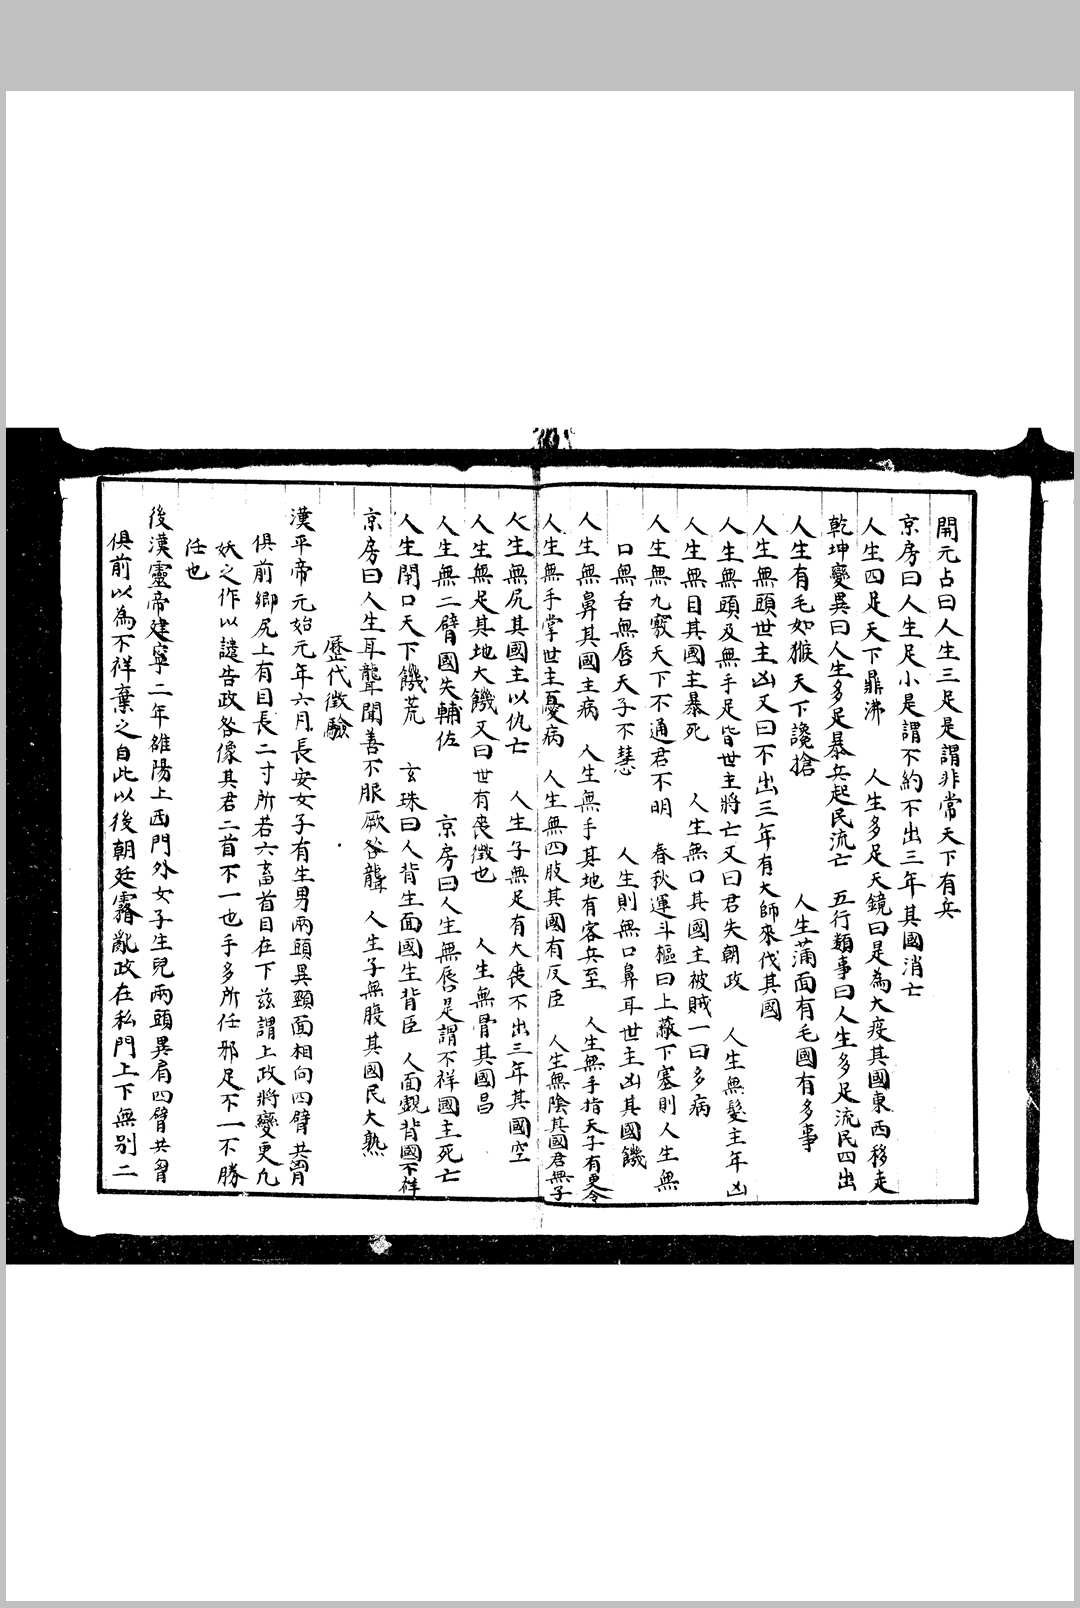 開元占曰人生三足是謂非常天下有兵
京房曰人生足小是謂不約不出三年其國消亡
人生四足天下鼎沸　人生多足天鏡曰是為大疫其國東西移走
乾坤變異曰人生多足暴兵起民流亡　五行類事曰人生多足流民四出
人生有毛如猴天下讒搶　人生蒲面有毛國有多事
人生無頭世主凶又曰不出三年有大師來伐其國
人生無頭及無手足皆世主將亡又曰君失朝政　人生無髮主年凶
人生無目其國主暴死　人生無口其國主被賊一曰多病
人生無九竅天下不通君不明　春秋運斗樞曰上蔽下塞則人生無
口無舌無唇天子不慧　人生則無口鼻耳世主凶其國饑
人生無鼻其國主病　人生無手其地有客兵至　人生無手指天子有更令
人生無手掌世主憂病　人生無四肢其國有反臣　人生無陰其國君無子
人生無尻其國主以仇亡　人生子無足有大喪不出三年其國空
人生無足其地大饑又曰世有喪徵也　人生無骨其國昌
人生無二臂國失輔佐　京房曰人生無唇是謂不祥國主死亡
人生閉口天下饑荒　玄珠曰人背生面國生背臣　人面覩背國不祥
京房曰人生耳聾聞善不服厥咎聾　人生子無腹其國民大熟
歷代徵驗
漢平帝元始元年六月長安女子有生男兩頭異頸面相向四臂共胷
俱前鄉尻上有目長二寸所若六畜首目在下茲謂上政將變更凡
妖之作以譴告政咎像其君二首不一也手多所任邪足不一不勝
任也
後漢靈帝建寧二年雒陽上西門外女子生兒兩頭異肩四臂共胷
俱前以為不祥棄之自此以後朝廷霿亂政在私門上下無别二